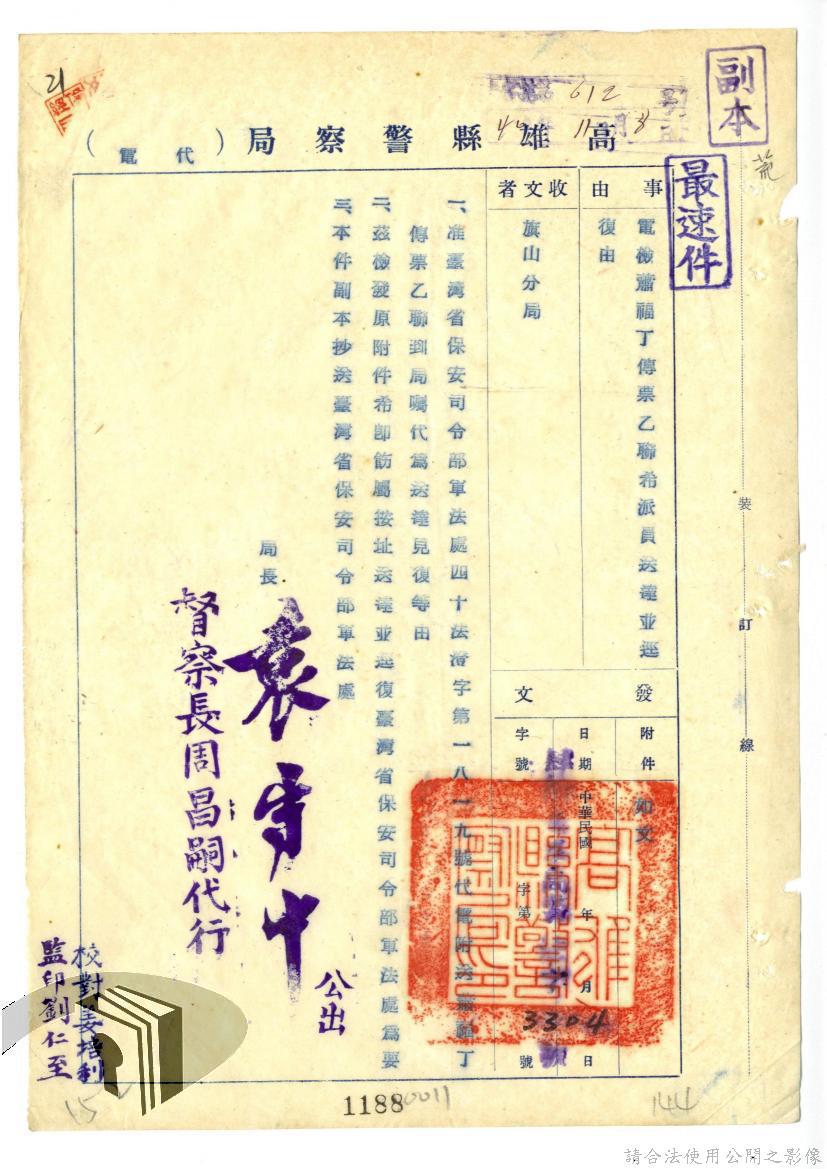 副本
最速件
高雄縣警察局（代電）
612
事由
電檢蕭福丁傳票乙聯希派員送達並逕
復由
收文者
旗山分局
發文
附件
如文
日期
中華民國 年 月 日
字號
字第 號
3304
一、准臺灣省保安司令部軍法處四十法澄字第一八一九號代電附送蕭福丁
傳票乙聯到局囑代為送達見復等由
二、茲檢發原附件希即飭屬按址送達並逕復臺灣省保安司令部軍法處為要
三、本件副本抄送臺灣省保安司令部軍法處
局長
公出
督察長周昌嗣代行
監印劉仁至
裝訂線
21
15
1188
0011
144
請合法使用公開之影像